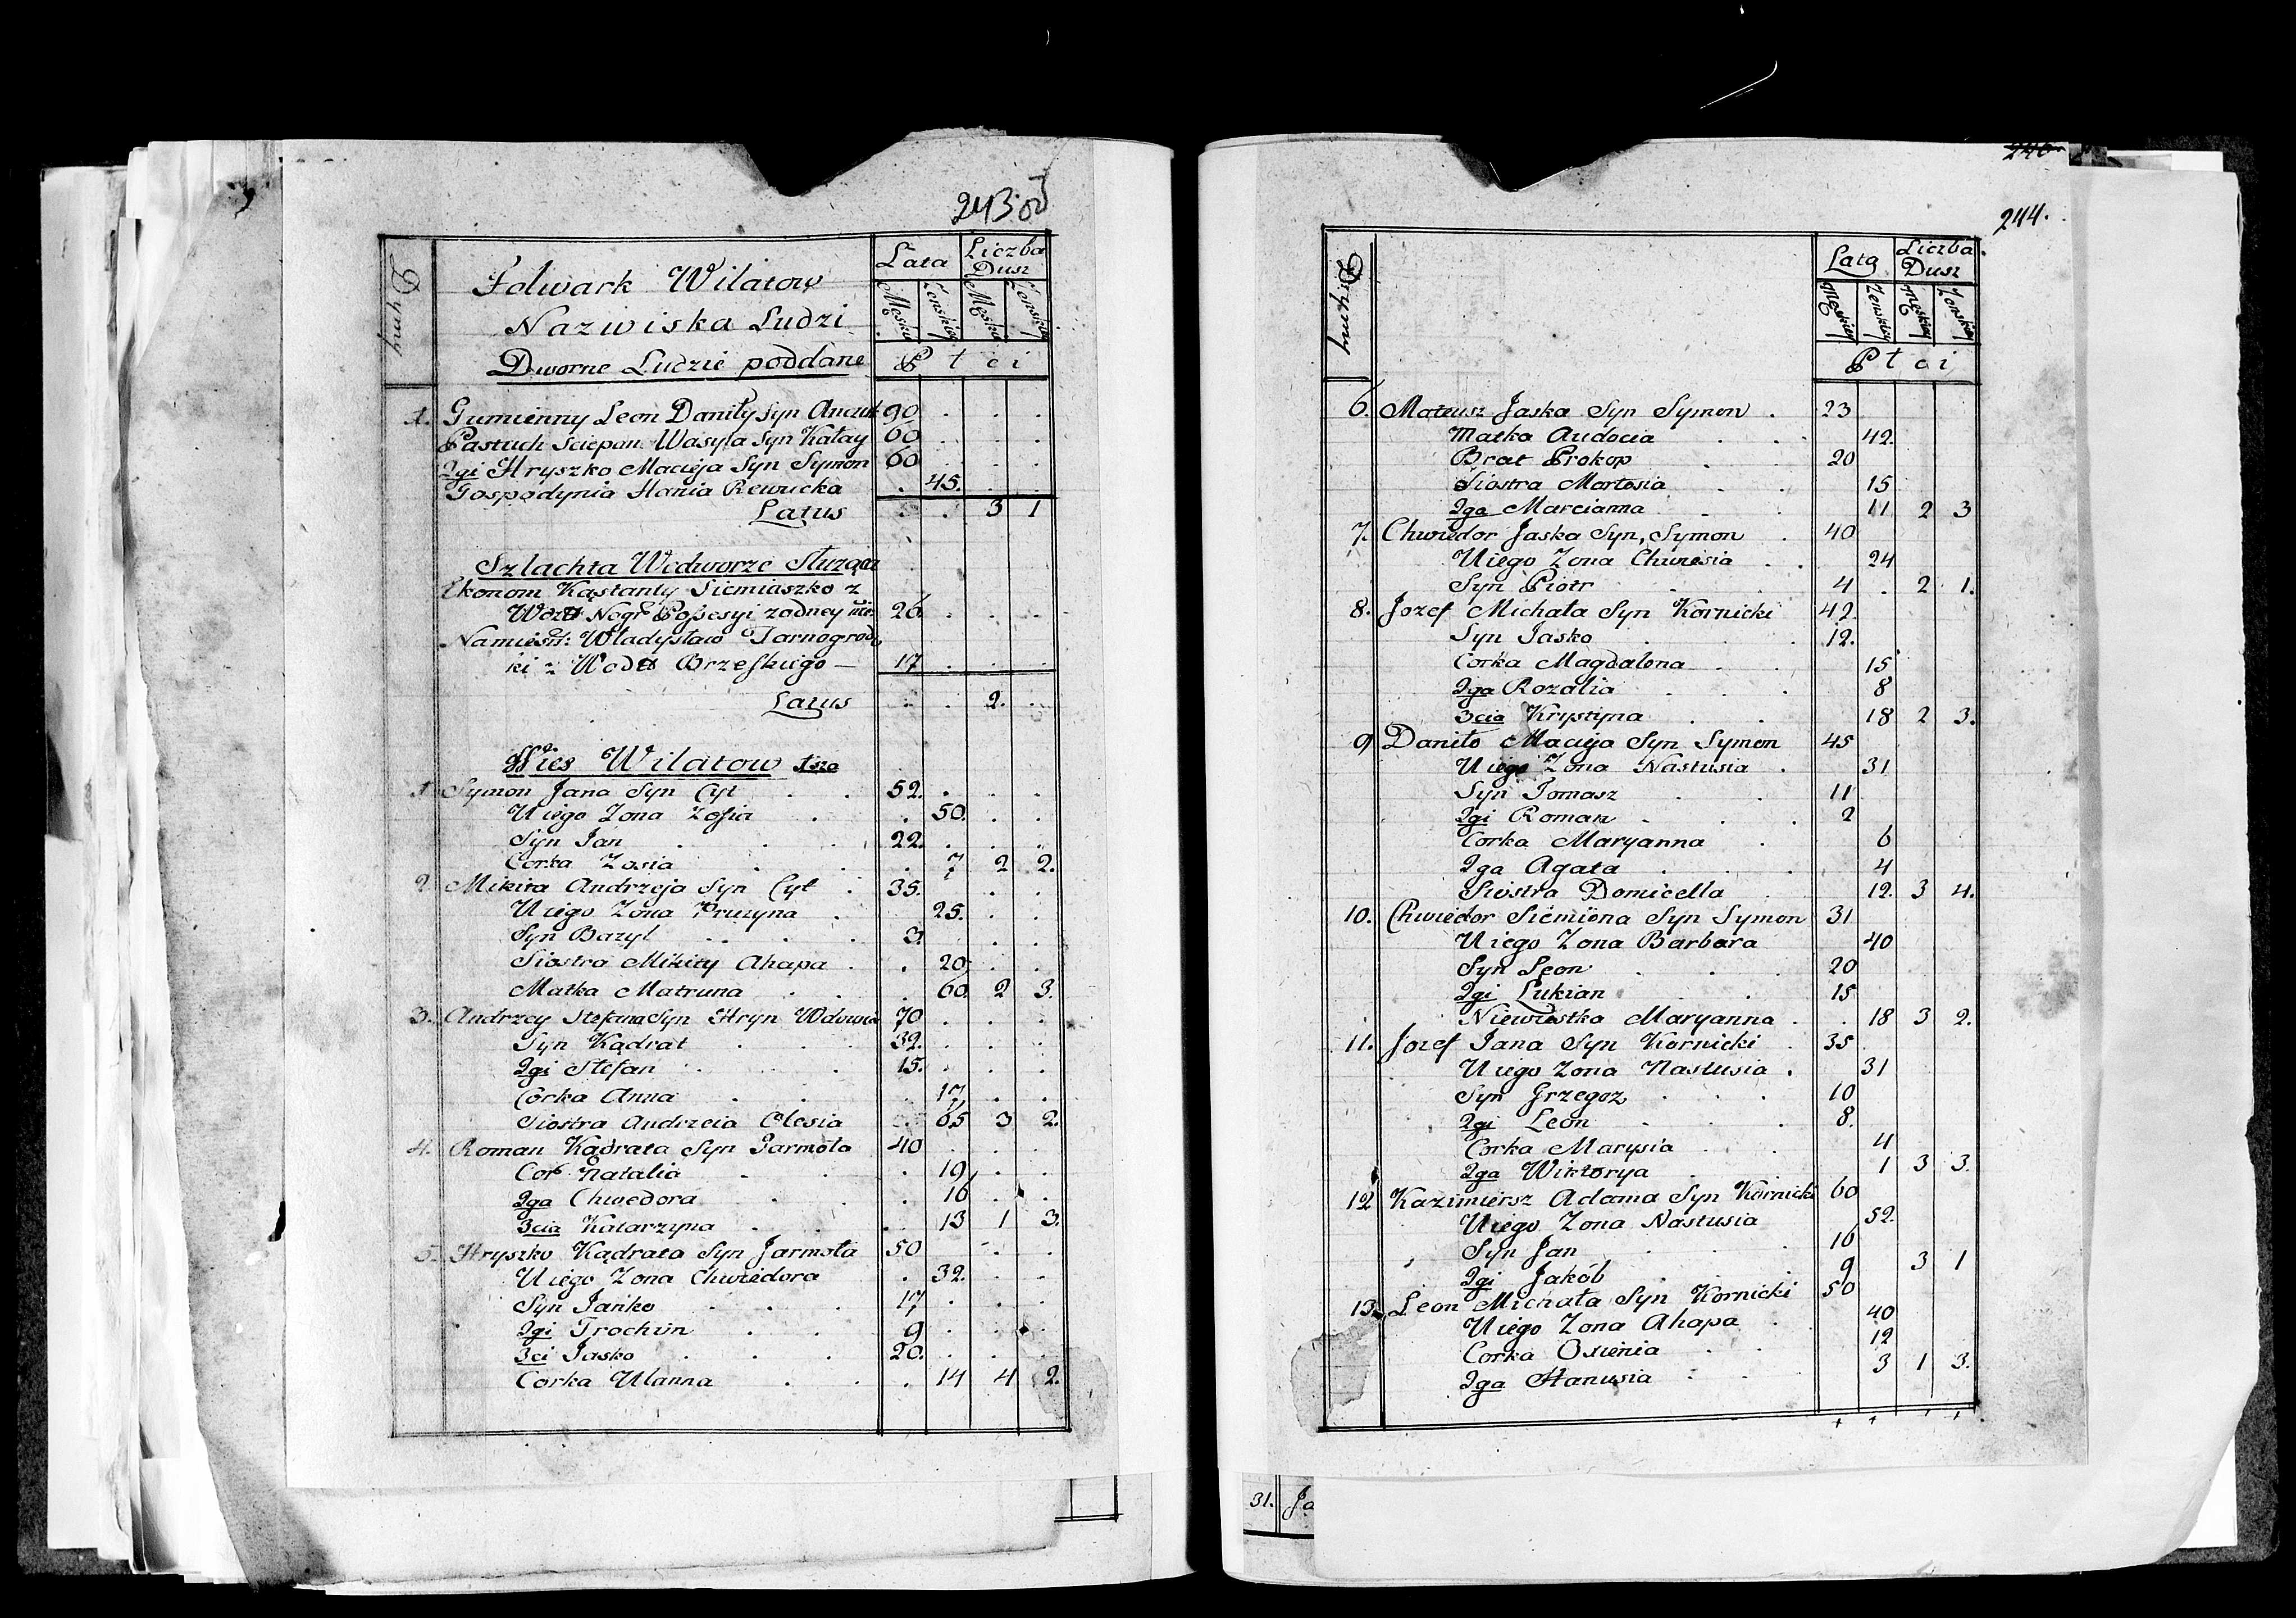 243 об
Dymy
Folwark Wilatow
Nazwiska Ludzi
Dworne Ludzie poddane
Lata Liczba Dusz
Męskiey Zenskiey Męskiey Zenskiey
P t c i
1. Gumienny Leon Daniły Syn 90
Pastuch Sciepan Wasyla Syn Kałay 60
2gi Hryszko Macieja Syn Symon 60
Gospodynia Hania Rewucka 45.
Latus 3 1
Szlachta Wedworze Służąca
Ekonom Kąstanty Siemiaszko z
Wdztt Nogr Possesyi zodney nie: 26
Namiestt: Władysław Tarnogrodz
ki z Wodtt Brzeskiego 17
Latus 2.
Wies Wilatow 1sza
1 Symon Jana Syn Cyt 52.
Uiego Zona Zofia 50.
Syn Jan 22.
Corka Zosia 7 2 2.
2 Mikita Andrzeja Syn Cyt 35.
Uiego Zona Pruzyna 25.
Syn Bazyl 3.
Siostra Mikity Ahapa 20
Matka Matruna 60 2 3.
3. Andrzey Stefana Syn Hryn Wdowiec 70
Syn Kądrat 32.
2gi Stefan 15.
Corka Anna 17
Siostra Andrzeia Olesia 65 3 2.
4. Roman Kądrata Syn Jarmoła 40
Cor Natalia 19
2ga Chwedora 16
3cia Katarzyna 13 1 3.
5. Hryszko Kądrata Syn Jarmoła 50
Uiego Zona Chwiedora 32.
Syn Janko 17
2gi Trochim 9
3ci Jasko 20.
Corka Ulanna 14 4 2.
246
244.
Dymy
Lata Liczba Dusz
Męskiey Zenskiey Męskiey Zenskiey
P t c i
6. Mateusz Jaska Syn Symon 23
Matka Audocia 42.
Brat Prokop 20
Siostra Martosia 15
2ga Marcianna 11 2 3
7. Chwiedor Jaska Syn, Symon 40
Uiego Zona Chwiesia 24
Syn Piotr 4 2 1.
8. Jozef Michała Syn Kornicki 42
Syn Jasko 12.
Corka Magdalena 15
2ga Rozalia 8
3cia Krystyna 18 2 3.
9 Daniło Macieja Syn Symon 45
Uiego Zona Nastusia 31
Syn Tomasz 11
2gi Roman 2
Corka Maryanna 6
2ga Agata 4
Siostra Domicella 12. 3 4.
10. Chwiedor Siemiona Syn Symon 31
Uiego Zona Barbara 40
Syn Leon 20
2gi Lukian 15
Niewiestka Maryanna 18 3 2.
11. Jozef Jana Syn Kornicki 35
Uiego Zona Nastusia 31
Syn Grzegoz 10
2gi Leon 8.
Corka Marysia 4
2ga Wiktorya 1 3 3
12 Kazimiersz Adama Syn Kornicki 60
Uiego Zona Nastusia 52.
Syn Jan 16
2gi Jakób 9 3 1
13. Leon Michała Syn Kornicki 50
Uiego Zona Ahapa 40
Corka Oxienia 12
2ga Hanusia 3 1 3.
31. Ja